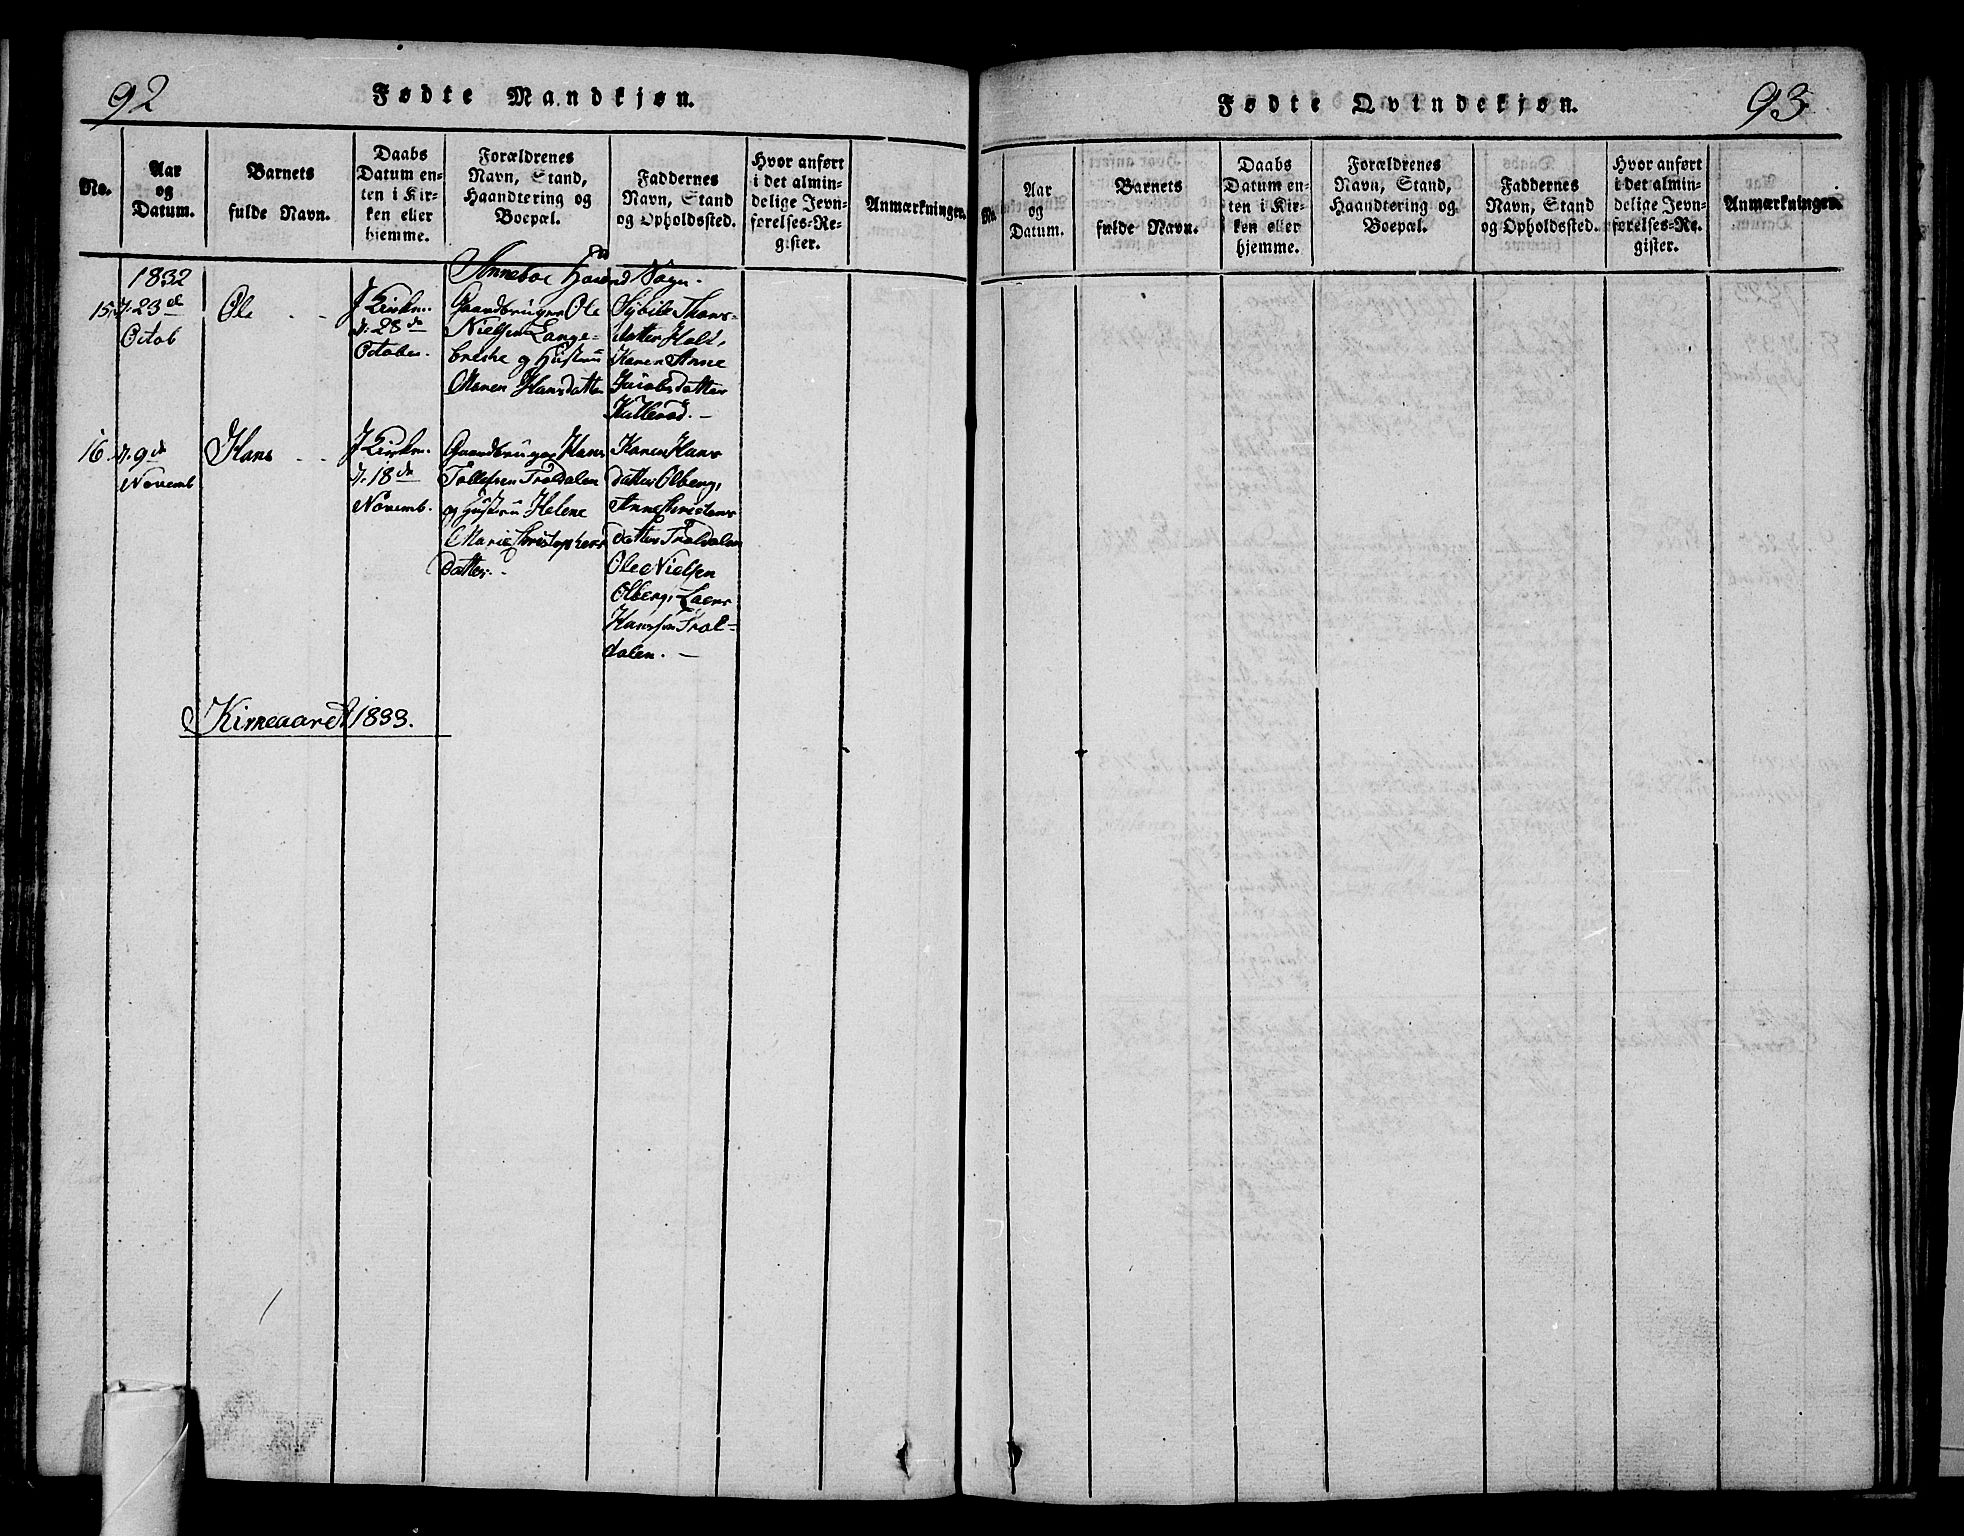 92
Fødte Mandkjøn.
No.
Aar
og
Datum.
Barnets
fulde Navn.
Daabs
Datum en-
ten i Kir-
ken eller
hjemme.
Forældrenes
Navn, Stand,
Haandtering og
Boepæl.
Faddernes
Navn, Stand
og Opholdssted.
Hvor anført
i det almin-
delige Jevn-
førelses-Re-
gister.
Anmærkninger.
Sogn.
1832
15, d. 23de
Octob
Ole
J Kirken
d. 28de
October.
Gaardbruger Ole
Nielsen Lange-
brekke og Hustru
Maren Hansdatter
Sybile Thors-
datter Holt,
Karen Anne
Jacobsdatter
Kullerød. —
16 d. 9de
Novemb
Hans
J Kirken
d. 18de
Novemb.
Gaardbruger Hans
Tollefsen Troldalen
og Hustru Helene
Marie Christophers
datter.
Karen Hans
datter Olberg,
Anne Christens-
datter Troldalen
Ole Nielsen
Olberg, Laers
Hanssen Trol-
dalen. —
Kirkeaaret 1833.
93
Fødte Qvindekjøn.
No.
Aar
og
Datum.
Barnets
fulde Navn.
Daabs
Datum en-
ten i Kir-
ken eller
hjemme.
Forældrenes
Navn, Stand,
Haandtering og
Boepæl.
Faddernes
Navn, Stand
og Opholdssted.
Hvor anført
i det almin-
delige Jevn-
førelses-Re-
gister.
Anmærkninger.